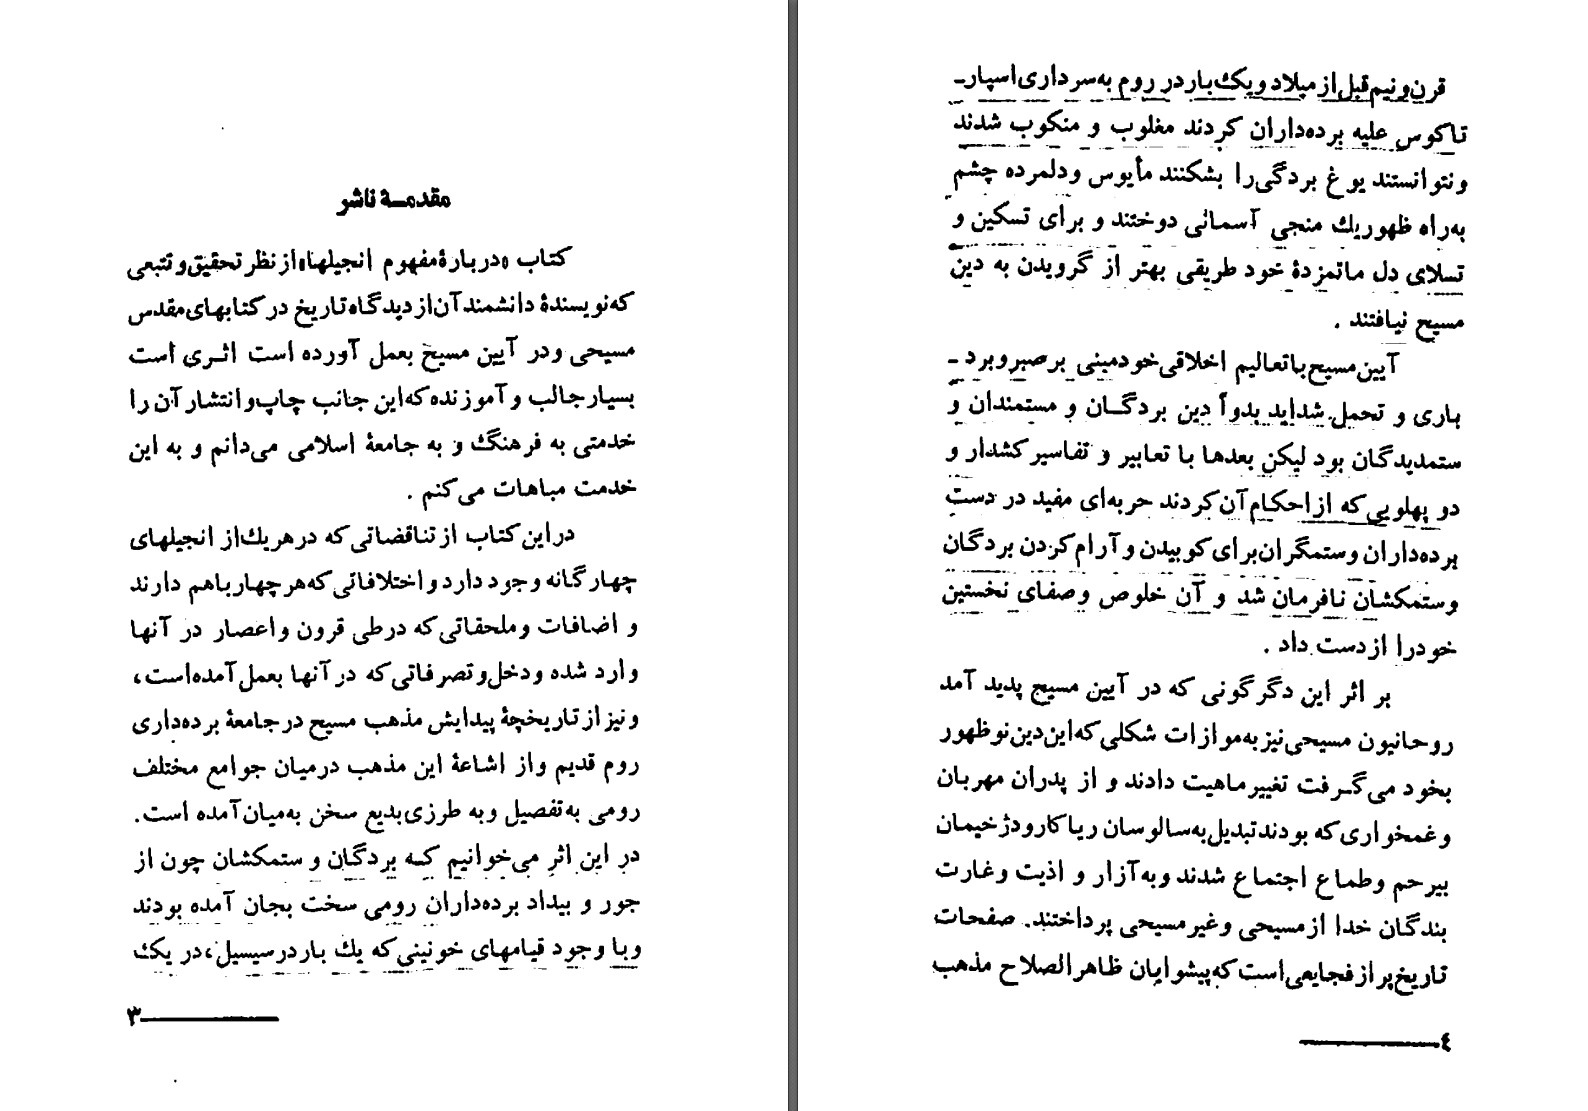 مقدمهٔ ناشر
کتاب «دربارهٔ مفهوم انجیلها» از نظر تحقیق و تتبعی
که نویسندهٔ دانشمند آن از دیدگاه تاریخ در کتابهای مقدس
مسیحی و در آیین مسیح بعمل آورده است اثری است
بسیار جالب و آموزنده که این جانب چاپ و انتشار آن را
خدمتی به فرهنگ و به جامعهٔ اسلامی می‌دانم و به این
خدمت مباهات می‌کنم .
در این کتاب از تناقضاتی که در هر یک از انجیلهای
چهارگانه وجود دارد و اختلافاتی که هر چهار باهم دارند
و اضافات و ملحقاتی که در طی قرون و اعصار در آنها
وارد شده و دخل و تصرفاتی که در آنها بعمل آمده است،
و نیز از تاریخچهٔ پیدایش مذهب مسیح در جامعهٔ برده‌داری
روم قدیم و از اشاعهٔ این مذهب در میان جوامع مختلف
رومی به تفصیل و به طرزی بدیع سخن به‌میان آمده است.
در این اثر می‌خوانیم کـه بردگان و ستمکشان چون از
جور و بیداد برده‌داران رومی سخت بجان آمده بودند
و با وجود قیامهای خونینی که یك بار در سیسیل، در یك
۳
قرن و نیم قبل از میلاد و یك بار در روم به سرداری اسپار-
تاکوس علیه برده‌داران کردند مغلوب و منکوب شدند
و نتوانستند یوغ بردگی را بشکنند مأیوس و دلمرده چشم
به‌راه ظهور یك منجی آسمانی دوختند و برای تسکین و
تسلای دل ماتمزدهٔ خود طریقی بهتر از گرویدن به دین
مسیح نیافتند .
آیین مسیح با تعالیم اخلاقی خود مبنی بر صبر و برد-
باری و تحمل شداید بدواً دین بردگـان و مستمندان و
ستمدیدگان بود لیکن بعدها با تعابیر و تفاسیر کشدار و
دو پهلویی که از احکام آن کردند حربه‌ای مفید در دست
برده‌داران و ستمگران برای کوبیدن و آرام کردن بردگان
و ستمکشان نافرمان شد و آن خلوص و صفای نخستین
خود را از دست داد .
بر اثر این دگرگونی که در آیین مسیح پدید آمد
روحانیون مسیحی نیز به موازات شکلی که این دین نوظهور
بخود می‌گـرفت تغییر ماهیت دادند و از پدران مهربان
و غمخواری که بودند تبدیل به سالوسان ریاکار و دژخیمان
بیرحم و طماع اجتماع شدند و به آزار و اذیت و غارت
بندگان خدا از مسیحی و غیر مسیحی پرداختند. صفحات
تاریخ پر از فجایعی است که پیشوایان ظاهرالصلاح مذهب
٤